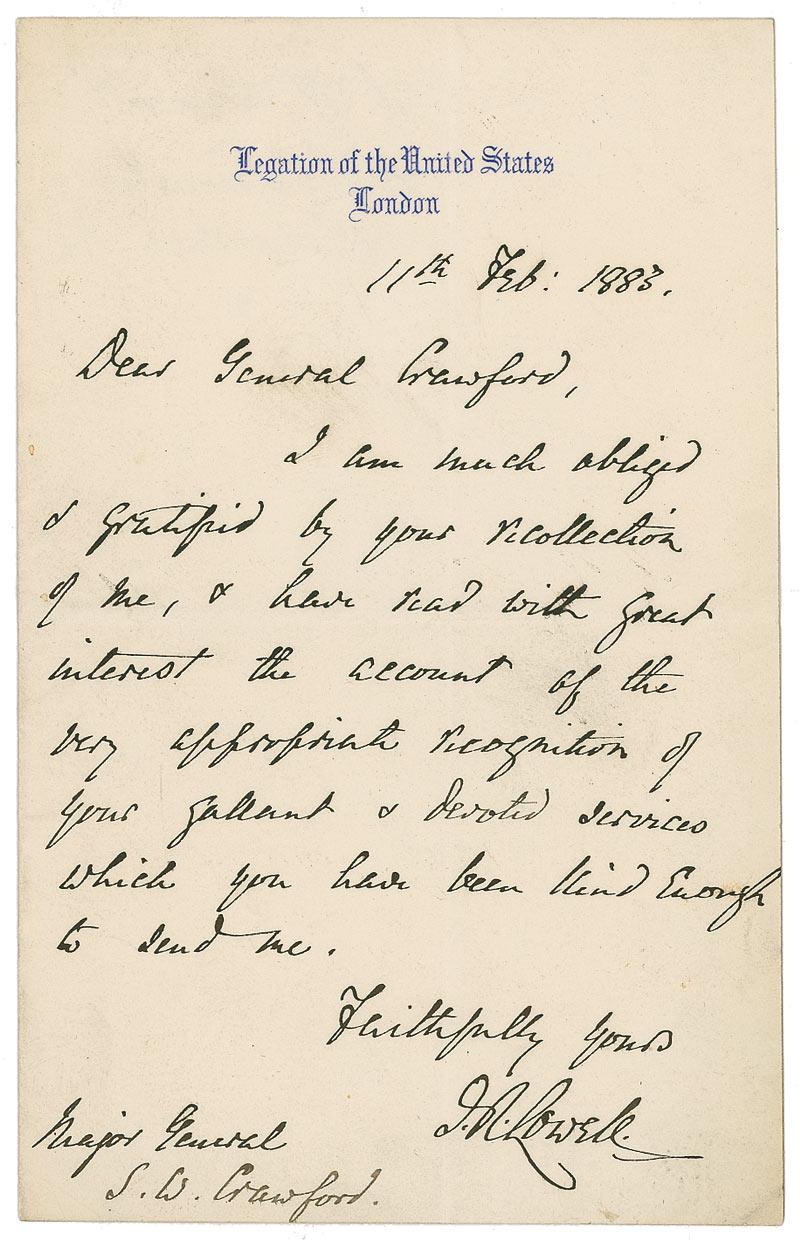 Legation of the United States
London
11th Feb: 1883.
Dear General Crawford,
I am much obliged
& gratified by your recollection
of me, & have read with great
interest the account of the
very appropriate recognition of
your gallant & devoted services
which you have been kind enough
to send me.
Faithfully yours
J. R. Lowell.
Major General
S. W. Crawford.